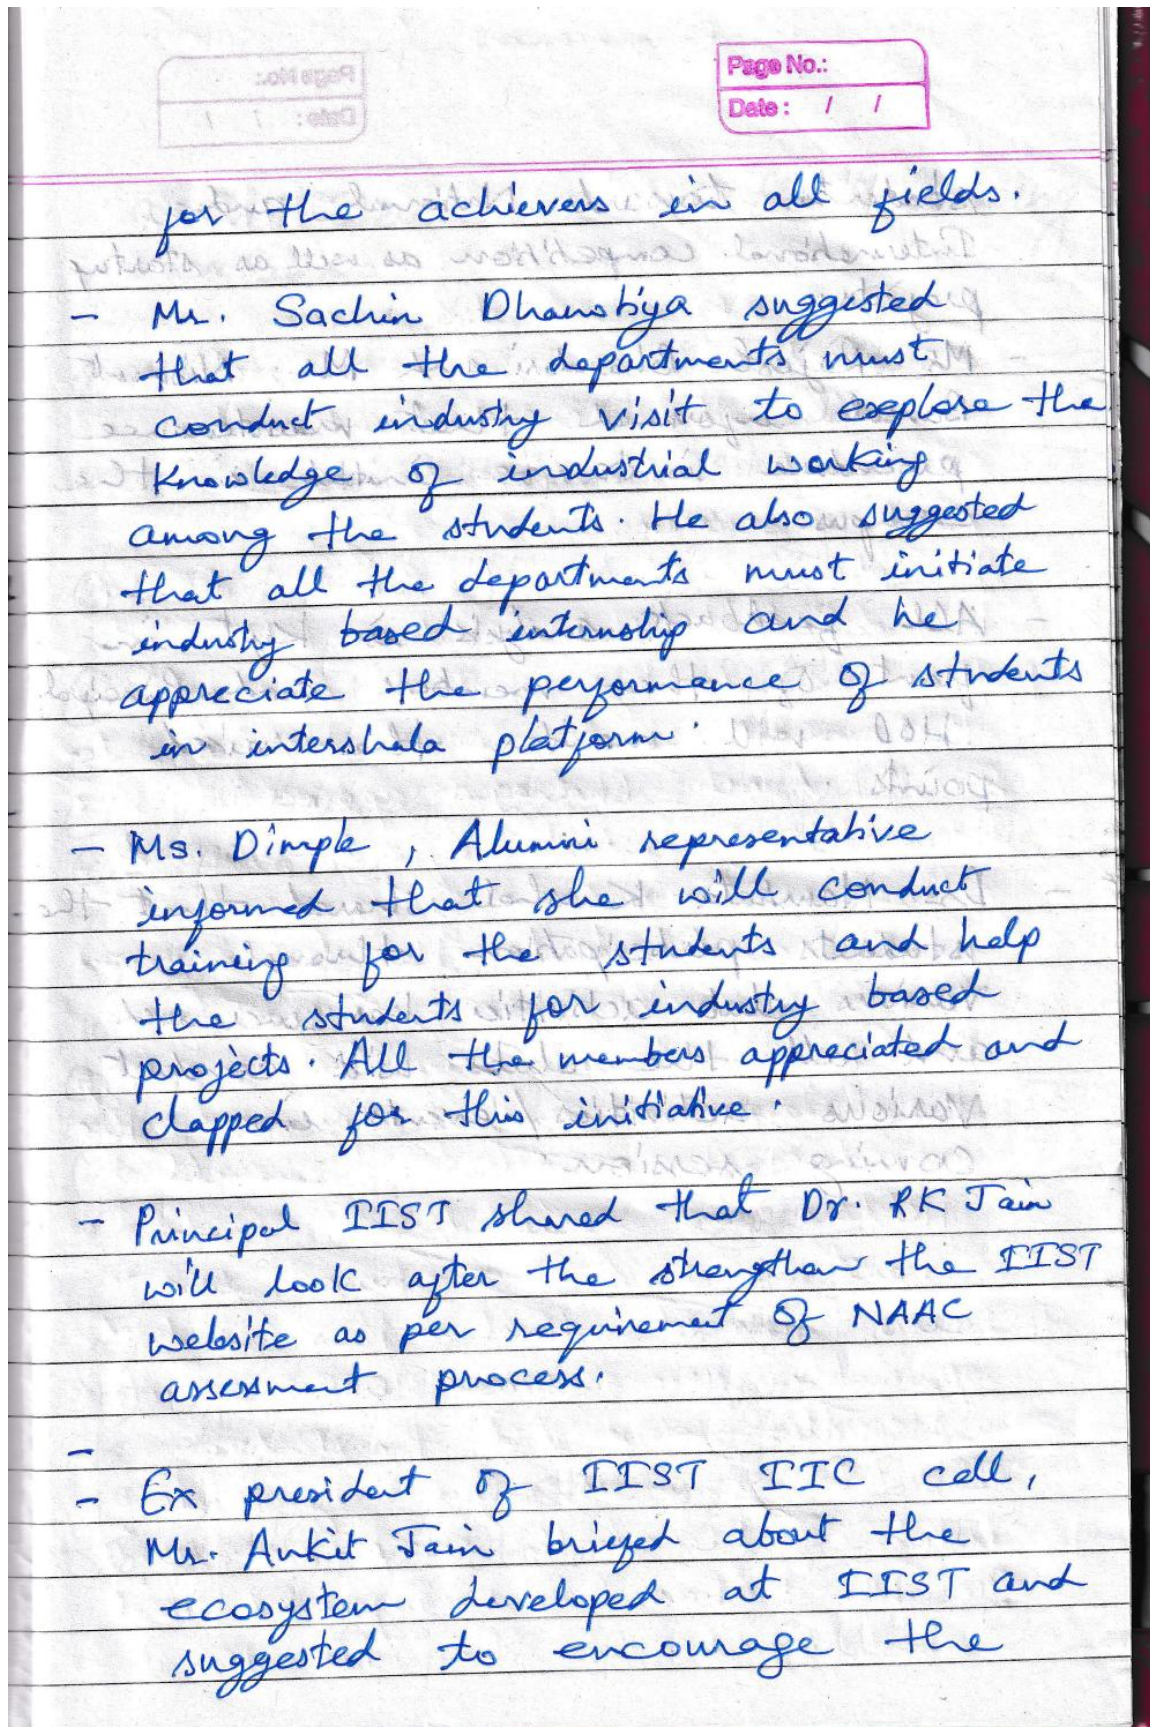 Page No.:
Date : / /
for the achievers in all fields.
- Mr. Sachin Dhanotiya suggested
that all the departments must
conduct industry visit to explore the
Knowledge of industrial working
among the students. He also suggested
that all the departments must initiate
industry based internship and he
appreciate the performance of students
in intershala platform.
- Ms. Dimple , Alumni representative
informed that she will conduct
training for the students and help
the students for industry based
projects. All the members appreciated and
clapped for this initiative.
- Principal IIST shared that Dr. RK Jain
will look after the strengthen the IIST
website as per requirement of NAAC
assessment process.
-
- Ex president of IIST IIC cell,
Mr. Ankit Jain briefed about the
ecosystem developed at IIST and
suggested to encourage the